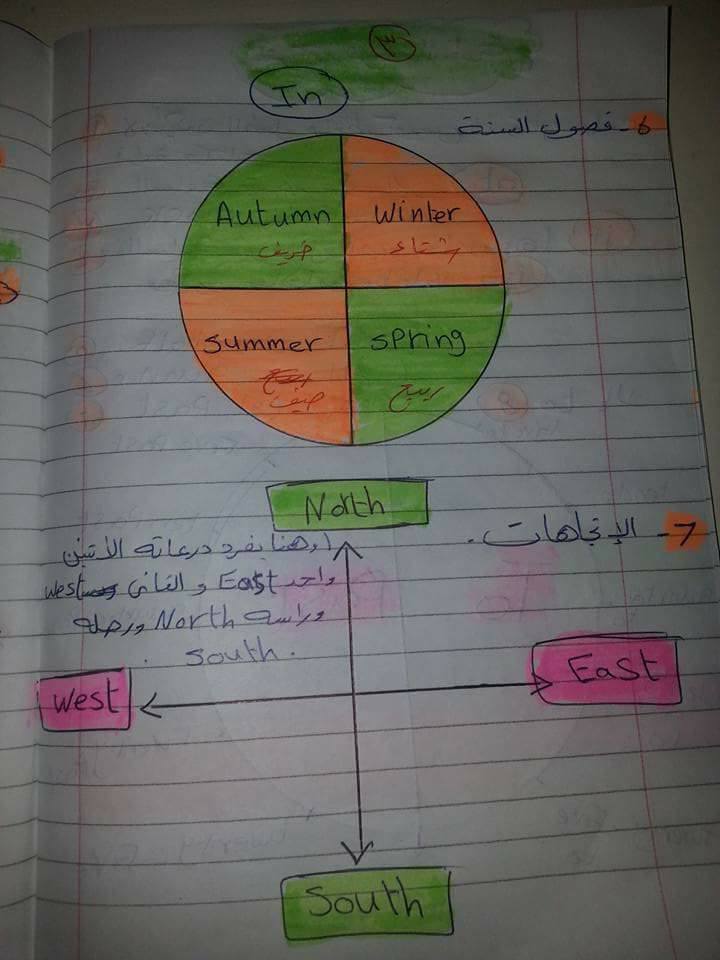 ٣
In
6- فصول السنة
Autumn
خريف
Winter
شتاء
Summer
صيف
Spring
ربيع
North
7- الإتجاهات.
وهنا بفرد درعاته الأتنين
واحد East و التاني west
وراسه North ورجله
South.
West
East
South